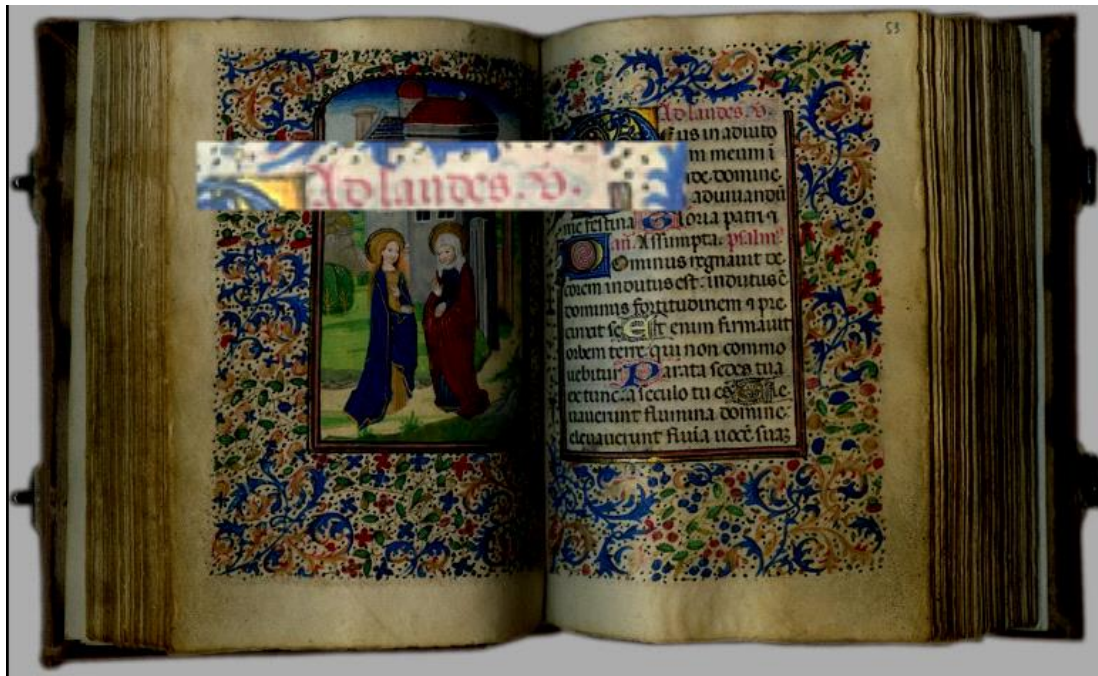 53
Ad laudes. v.
Ad laudes. v.
us in adiuto
m meum i
de. domine
adiuuandū
me festina Gloria patri ⁊
an̄. Assumpta. psalmꝰ
Dominus regnauit de
corem indutus est: indutus ē
dominus fortitudinem ⁊ pre
cinxit se Et enim firmauit
orbem terre qui non commo
uebitur Parata sedes tua
ex tunc. a seculo tu es Ele
uauerunt flumina domine:
eleuauerunt fluuia uocē suaꝫ